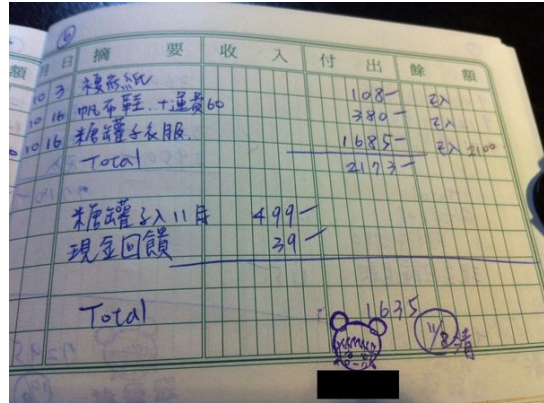 6
額 月 日 摘 要 收 入 付 出 餘 額
10 3 複寫紙 108- 已入
10 16 帆布鞋.+運費60 380- 已入
10 16 糖罐子衣服. 1685- 已入 2100
Total 2173-
糖罐子入11月 499-
現金回饋 39-
Total 1635
11/8清